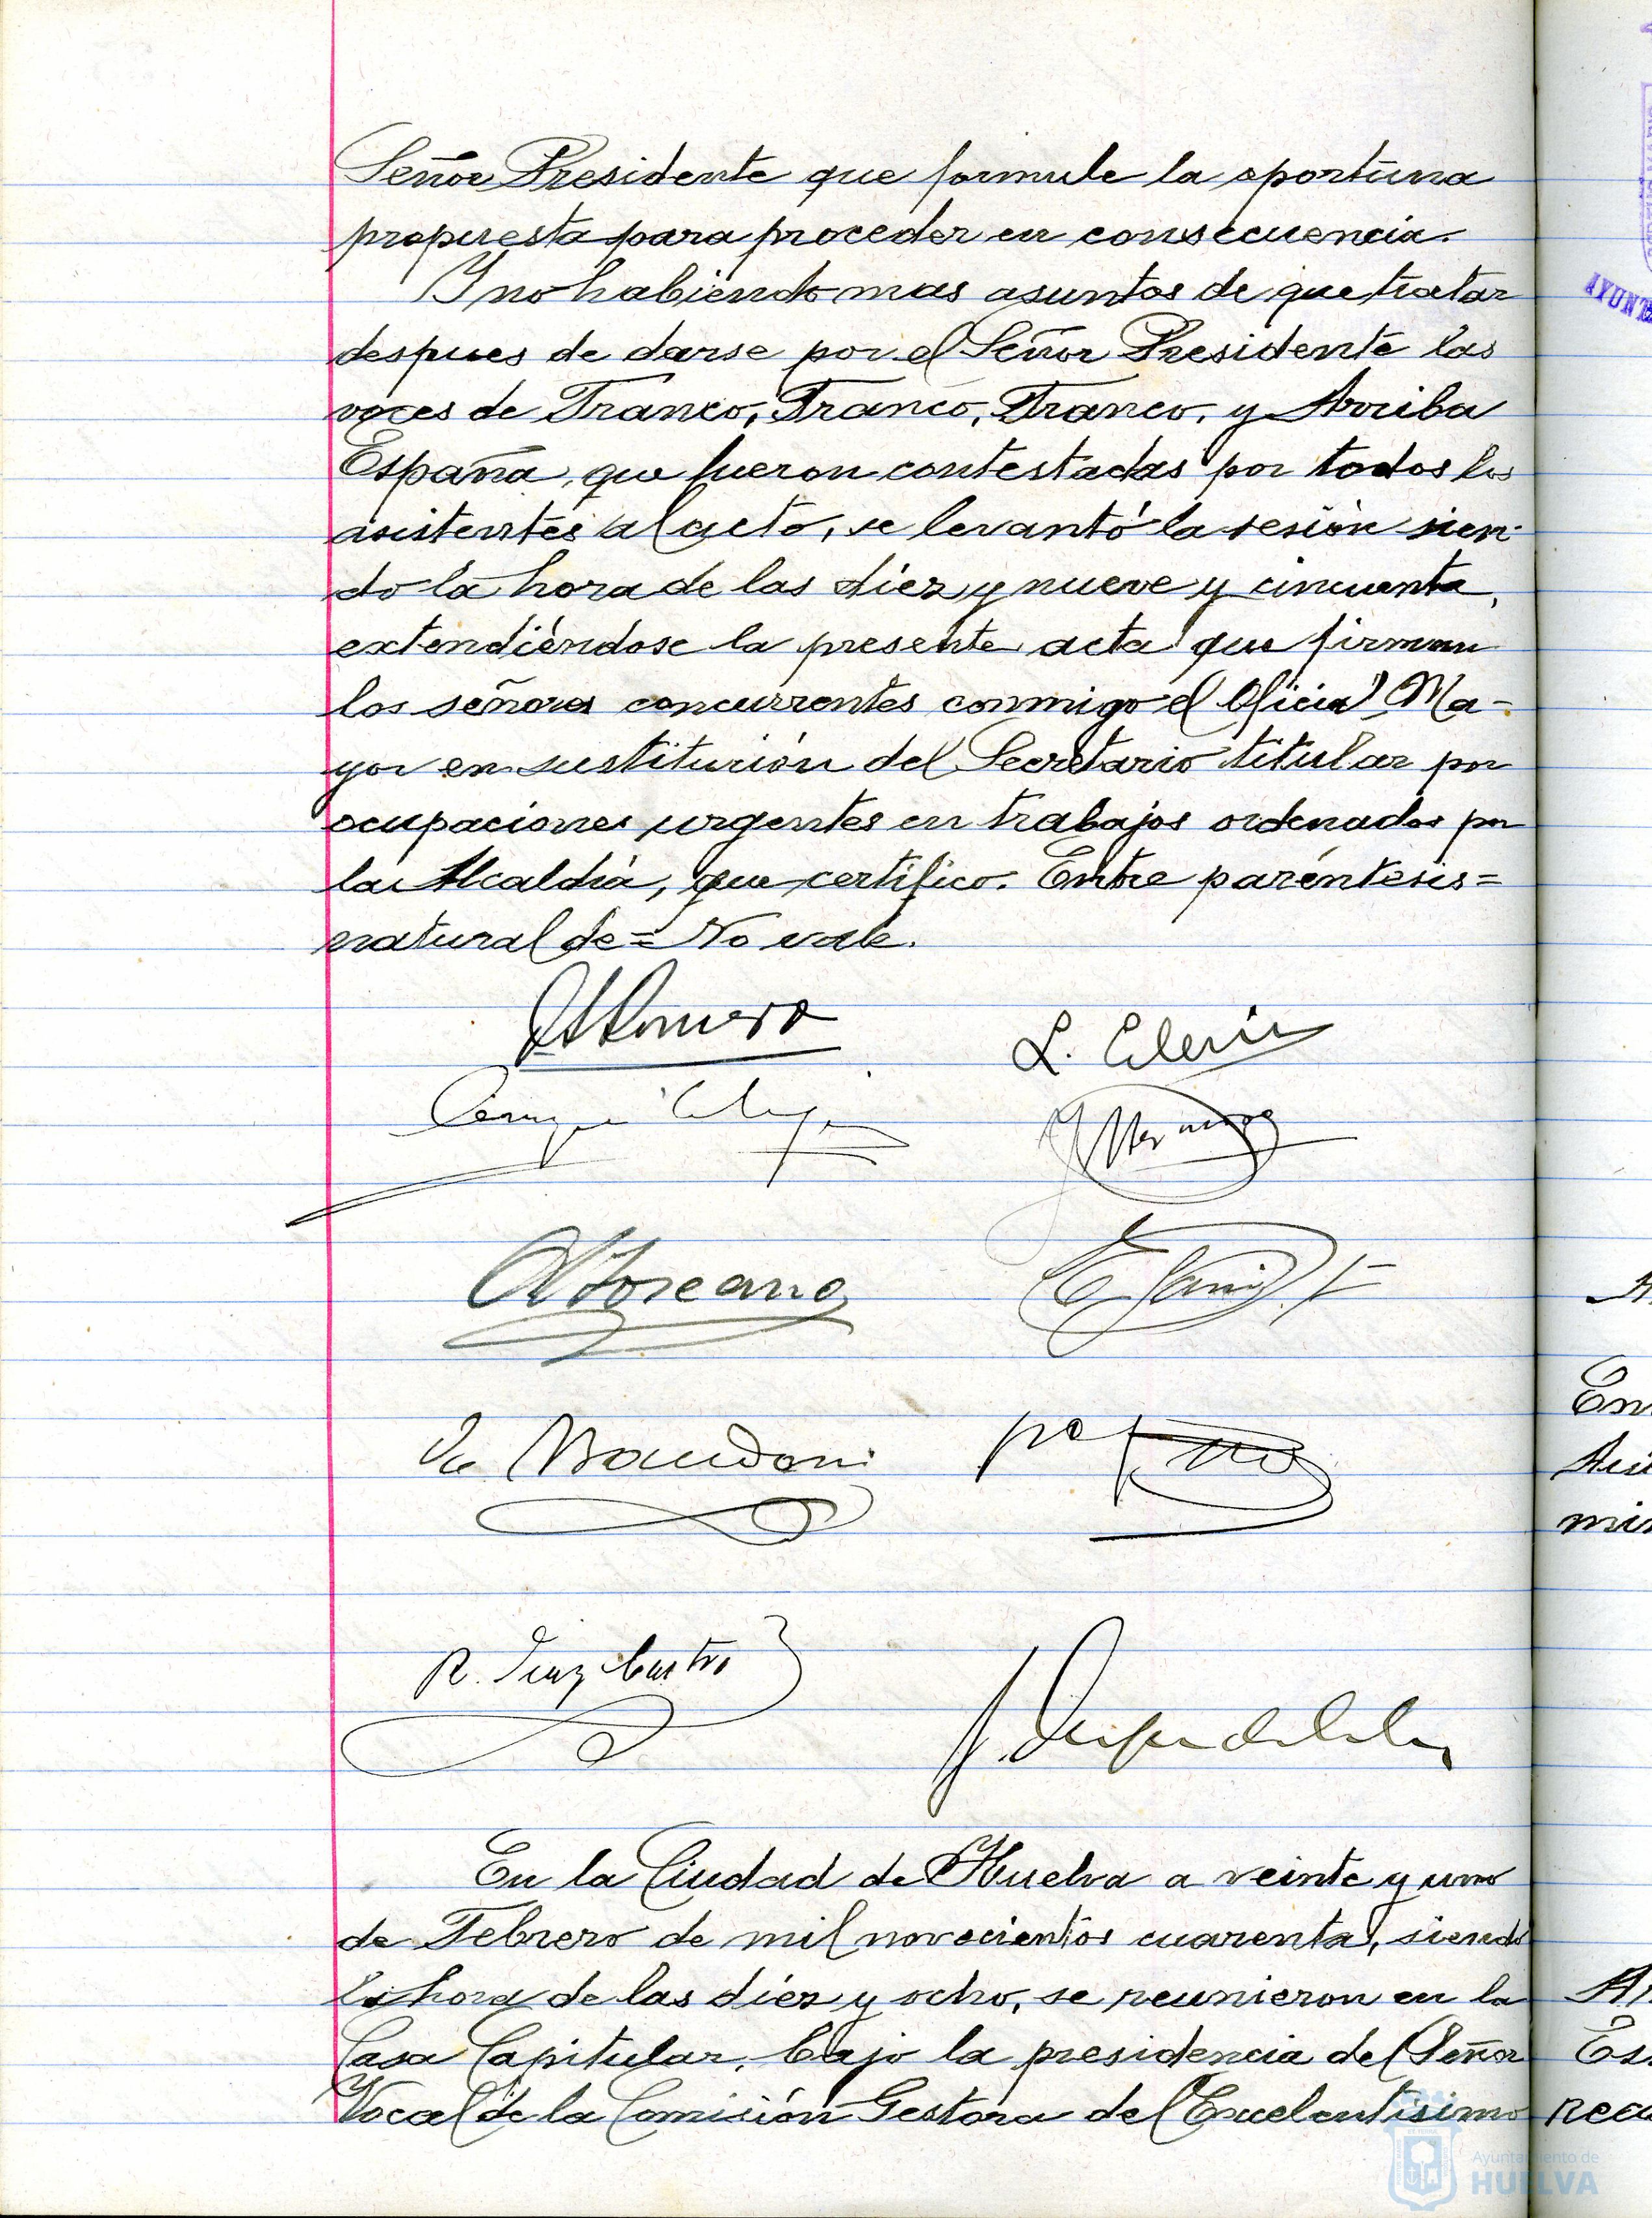 Señor Presidente que formule la oportuna
propuesta para proceder en consecuencia.
Y no habiendo mas asuntos de que tratar
despues de darse por el Señor Presidente las
voces de Franco, Franco, Franco, y Arriba
España, que fueron contestadas por todos los
asistentes al acto, se levantó la sesión sien-
do la hora de las diez y nueve y cincuenta,
extendiéndose la presente acta que firman
los señores concurrentes conmigo el Oficial Ma-
yor en sustitución del Secretario titular por
ocupaciones urgentes en trabajos ordenados por
la Alcaldía, que certifico. Entre paréntesis=
natural de= No vale.
Romero
L.
R. Diaz Castro
En la Ciudad de Huelva a veinte y uno
de Febrero de mil novecientos cuarenta, siendo
la hora de las diez y ocho, se reunieron en la
Casa Capitular, bajo la presidencia del Señor
Vocal de la Comisión Gestora del Excelentisimo
AYUNT
Ayuntamiento de
HUELVA